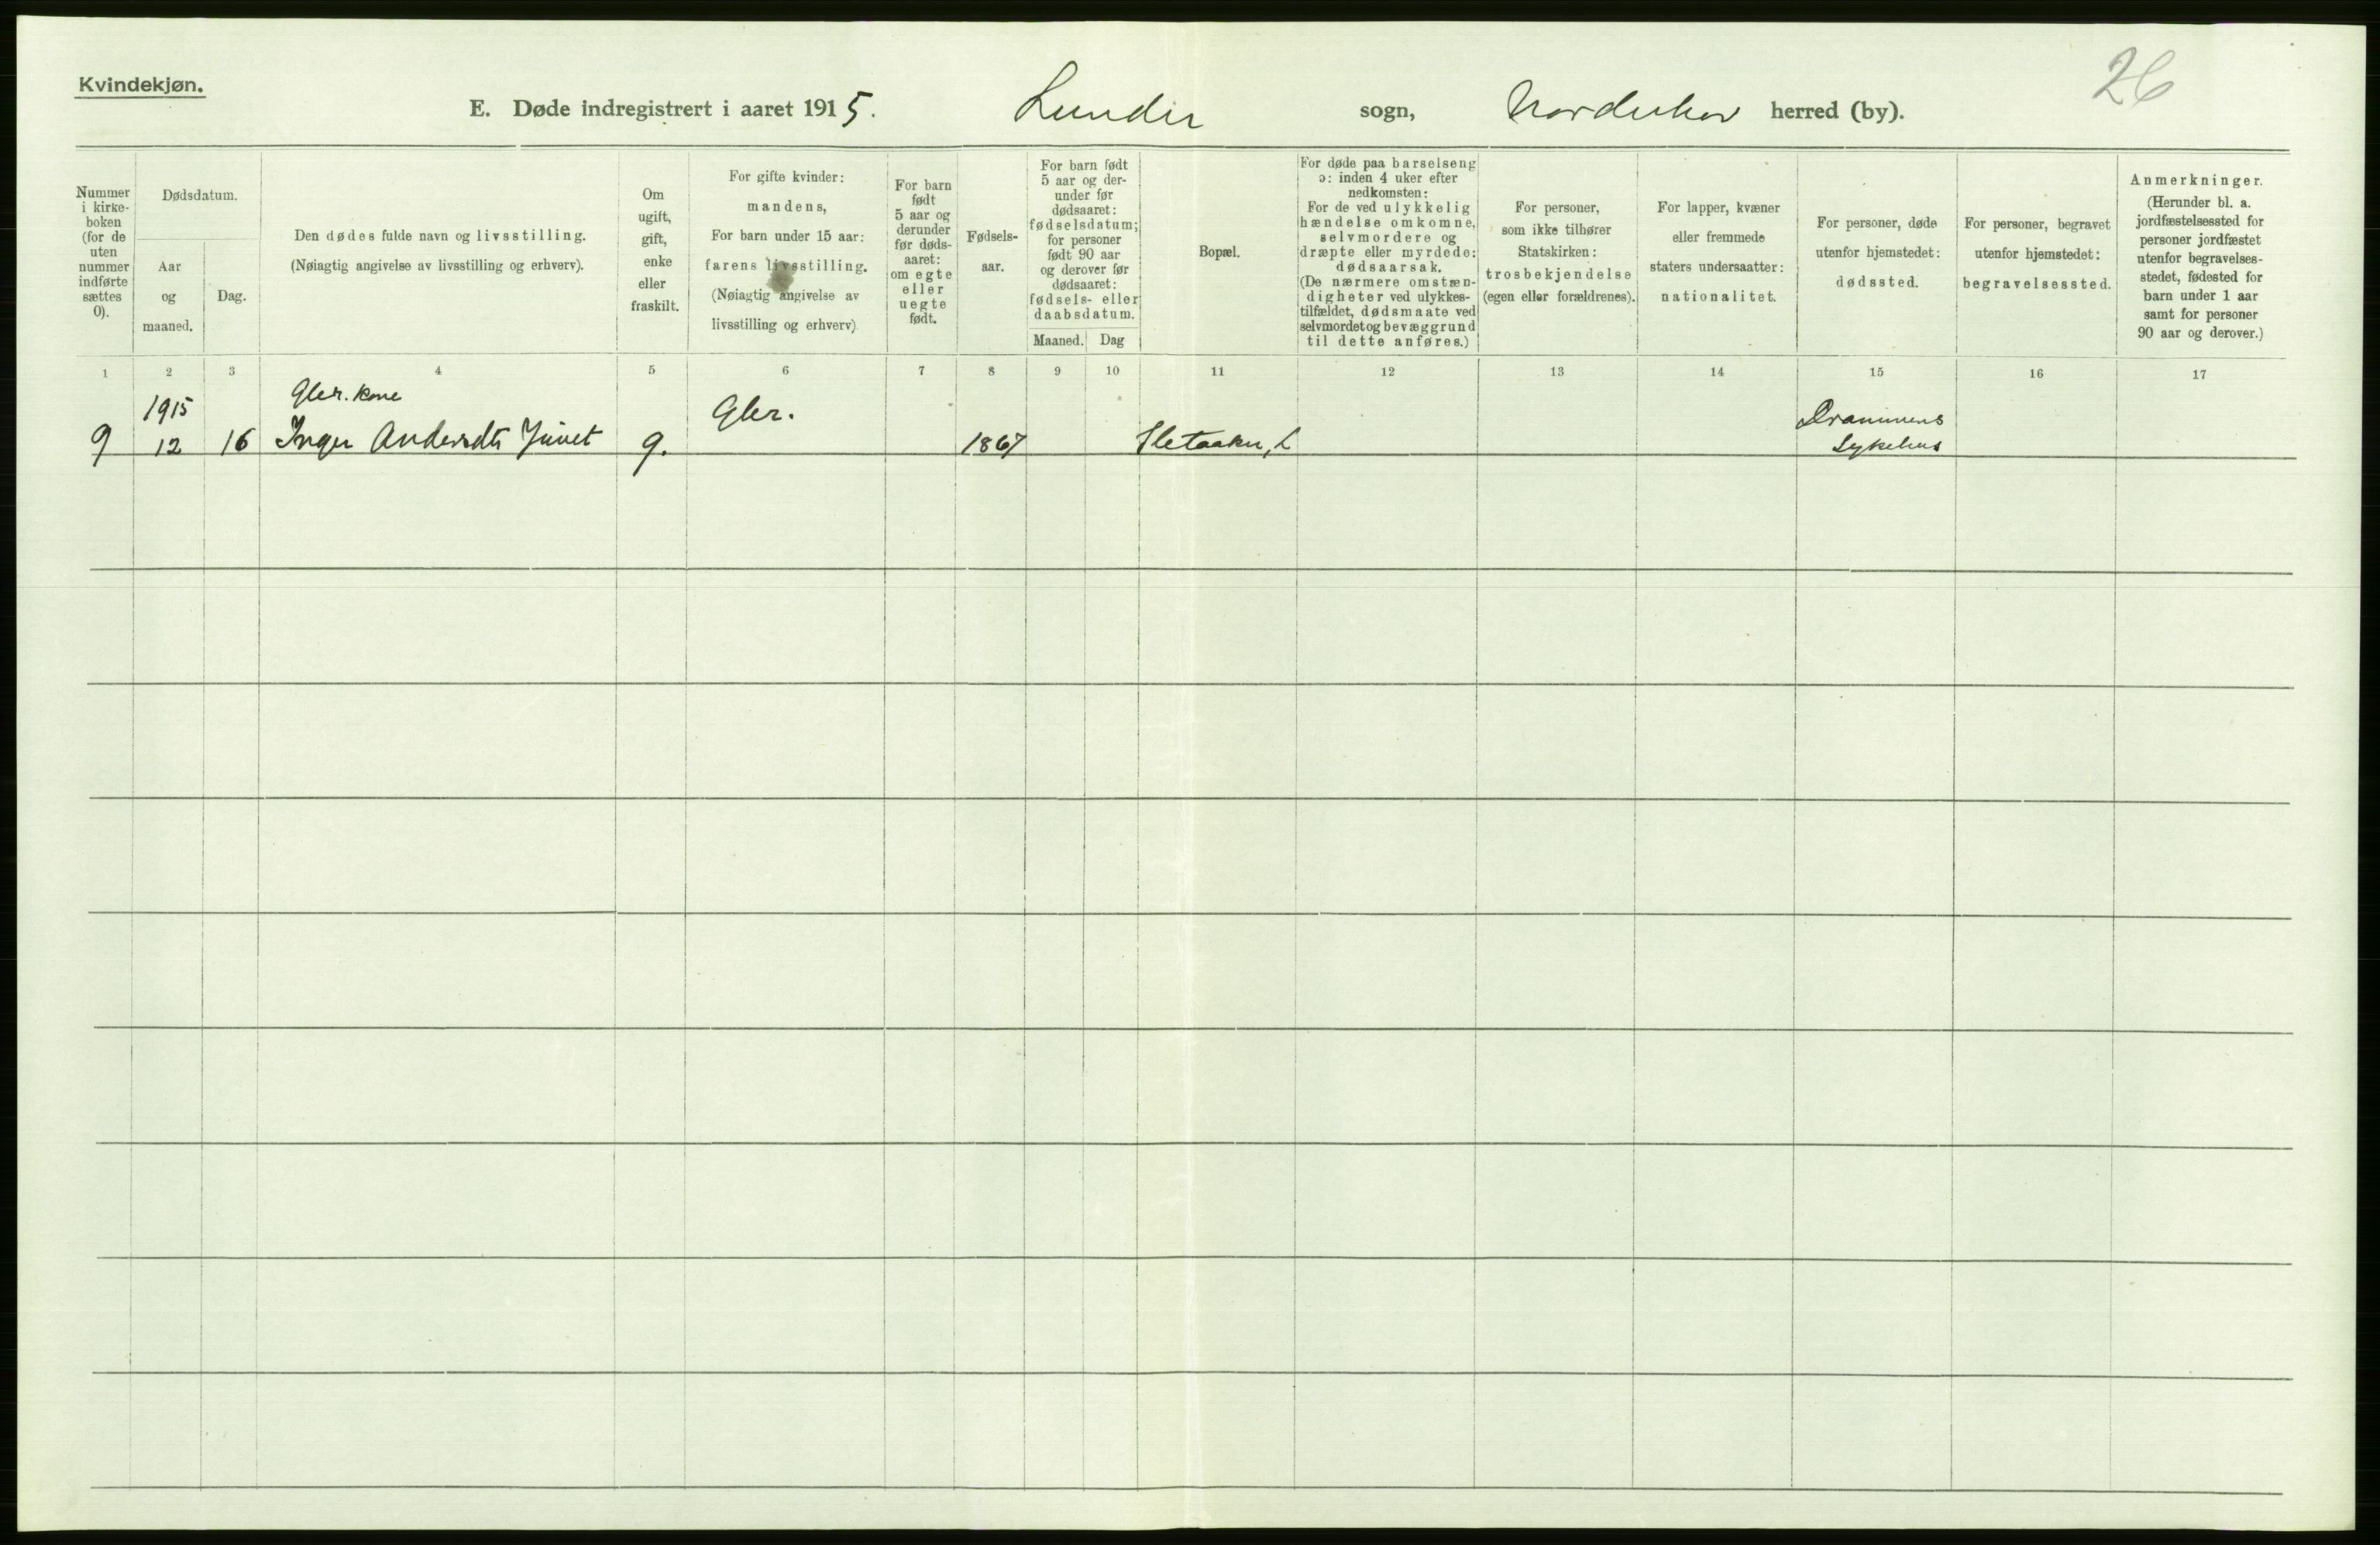 Kvindekjøn.
26
E. Døde indregistrert i aaret 1915. Lunder sogn, Norderhov herred (by).
Nummer
i kirke-
boken
(for de
uten
nummer
indførte
sættes
0).
Dødsdatum.
Aar
og
maaned.
Dag.
Den dødes fulde navn og livsstilling.
(Nøiagtig angivelse av livsstilling og erhverv).
Om
ugift,
gift,
enke
eller
fraskilt.
For gifte kvinder:
mandens,
For barn under 15 aar:
farens livsstilling.
(Nøiagtig angivelse av
livsstilling og erhverv)
For barn
født
5 aar og
derunder
før døds-
aaret:
om egte
eller
uegte
født.
Fødsels-
aar.
For barn født
5 aar og der-
under før
dødsaaret:
fødselsdatum;
for personer
født 90 aar
og derover før
dødsaaret:
fødsels- eller
daabsdatum.
Maaned. Dag
Bopæl.
For døde paa barselseng
ɔ: inden 4 uker efter
nedkomsten:
For de ved ulykkelig
hændelse omkomne,
selvmordere og
dræpte eller myrdede:
dødsaarsak.
(De nærmere omstæn-
digheter ved ulykkes-
tilfældet, dødsmaate ved
selvmord et og bevæggrund
til dette anføres.)
For personer,
som ikke tilhører
Statskirken:
trosbekjendelse
(egen eller forældrenes).
For lapper, kvæner
eller fremmede
staters undersaatter:
nationalitet.
For personer, døde
utenfor hjemstedet:
dødssted.
For personer, begravet
utenfor hjemstedet:
begravelsessted.
Anmerkninger.
(Herunder bl. a.
jordfæstelsessted for
personer jordfæstet
utenfor begravelses-
stedet, fødested for
barn under 1 aar
samt for personer
90 aar og derover.)
1 2 3 4 5 6 7 8 9 10 11 12 13 14 15 16 17
1915 Gbr. kone Gbr. Drammens
9 12 16 Inger Andersdtr g. 1867 L Sykehus